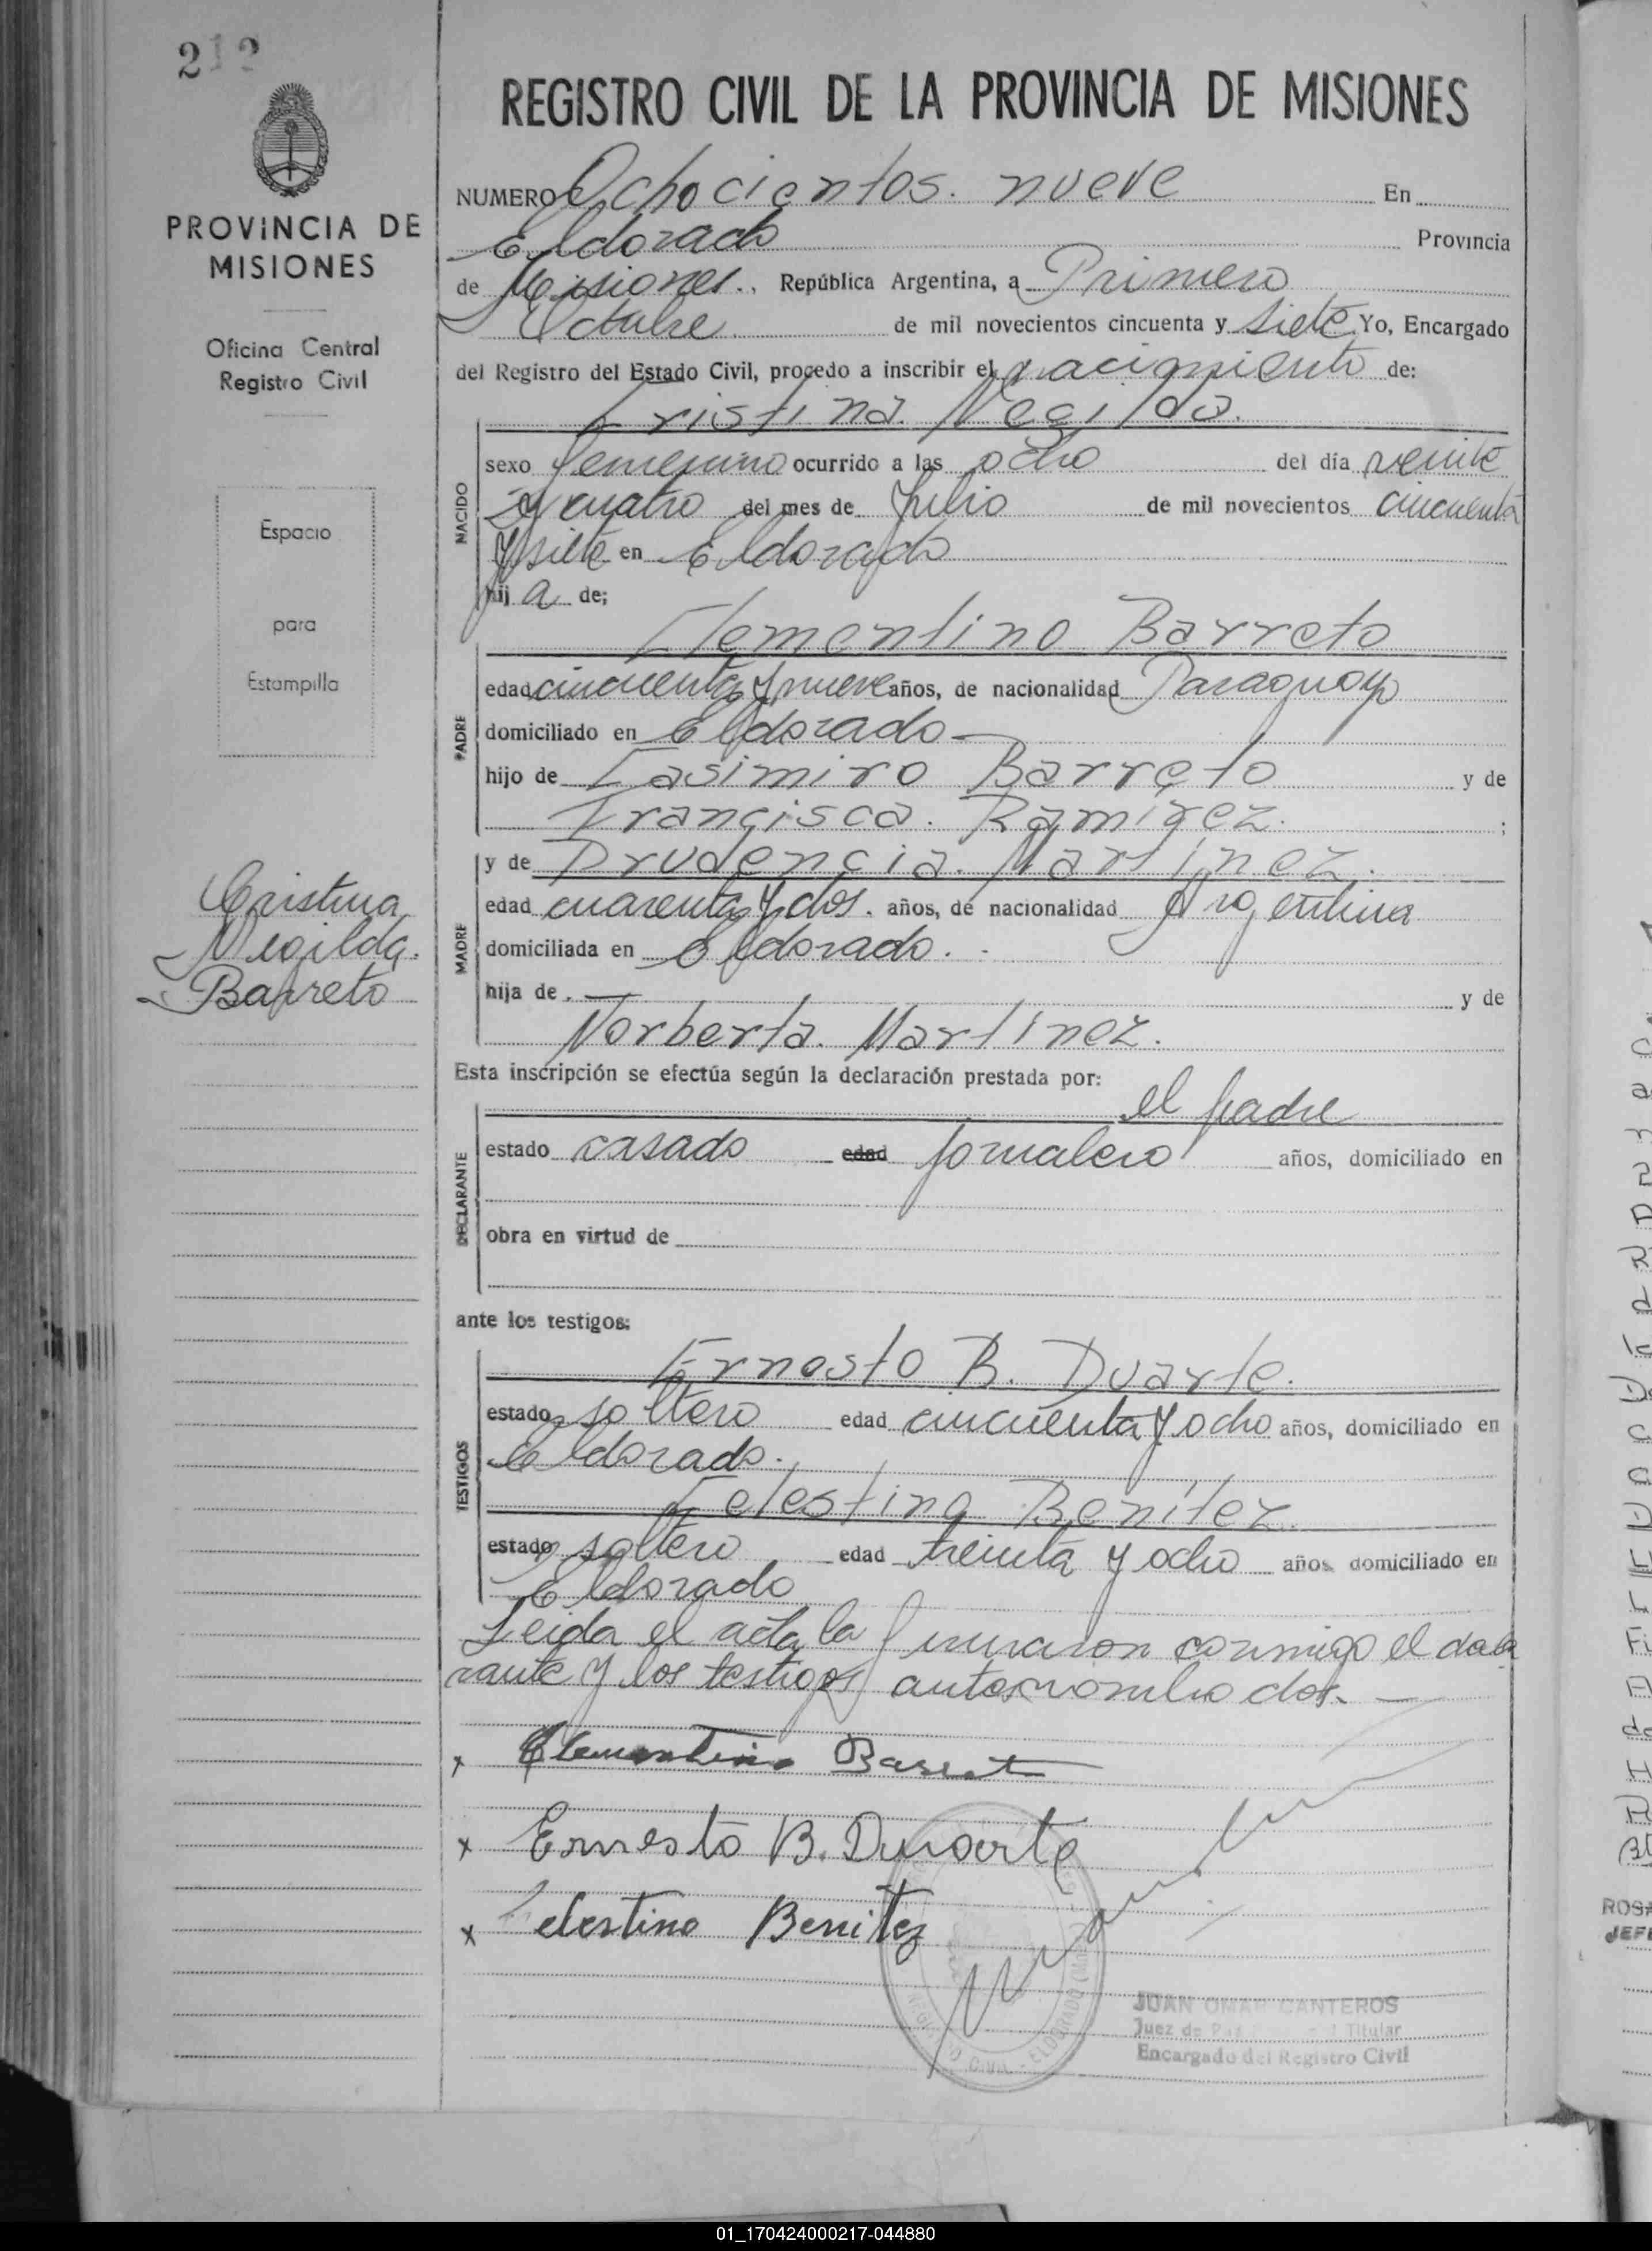 212
PROVINCIA DE
MISIONES
Oficina Central
Registro Civil
Espacio
para
Estampilla
Cristina
Negilda.
Barreto
REGISTRO CIVIL DE LA PROVINCIA DE MISIONES
NUMERO Ochocientos. nueve En
Eldorado Provincia
de Misiones., República Argentina, a Primero
Octubre de mil novecientos cincuenta y siete Yo, Encargado
del Registro del Estado Civil, procedo a inscribir el nacimiento de:
Cristina. Negilda.
NACIDO
sexo femenino ocurrido a las ocho del día veinte
y cuatro del mes de Julio de mil novecientos cincuenta
y siete en Eldorado
hij a de;
Clementino Barreto
PADRE
edad cincuenta y nueve años, de nacionalidad Paraguay
domiciliado en Eldorado
hijo de Casimiro Barreto y de
Francisca. Ramírez. ;
y de Prudencia. Martínez.
MADRE
edad cuarenta y dos. años, de nacionalidad Argentina
domiciliada en Eldorado.
hija de . — y de
Norberta. Martínez.
Esta inscripción se efectúa según la declaración prestada por:
el padre
DECLARANTE
estado casado edad jornalero años, domiciliado en
obra en virtud de
ante los testigos:
Ernesto B. Duarte.
TESTIGOS
estado soltero edad cincuenta y ocho años, domiciliado en
Eldorado.
Celestino Benítez.
estado soltero edad treinta y ocho años domiciliado en
Eldorado
Leida el acta la firmaron conmigo el decla
rante y los testigos
x Clementino Barret
x Ernesto B. Duarte
x Celestino Benitez
REGISTRO CIVIL - ELDORADO
JUAN OMAR CANTEROS
Juez de Paz Titular
Encargado del Registro Civil
ROSA
JEFE
01_170424000217-044880